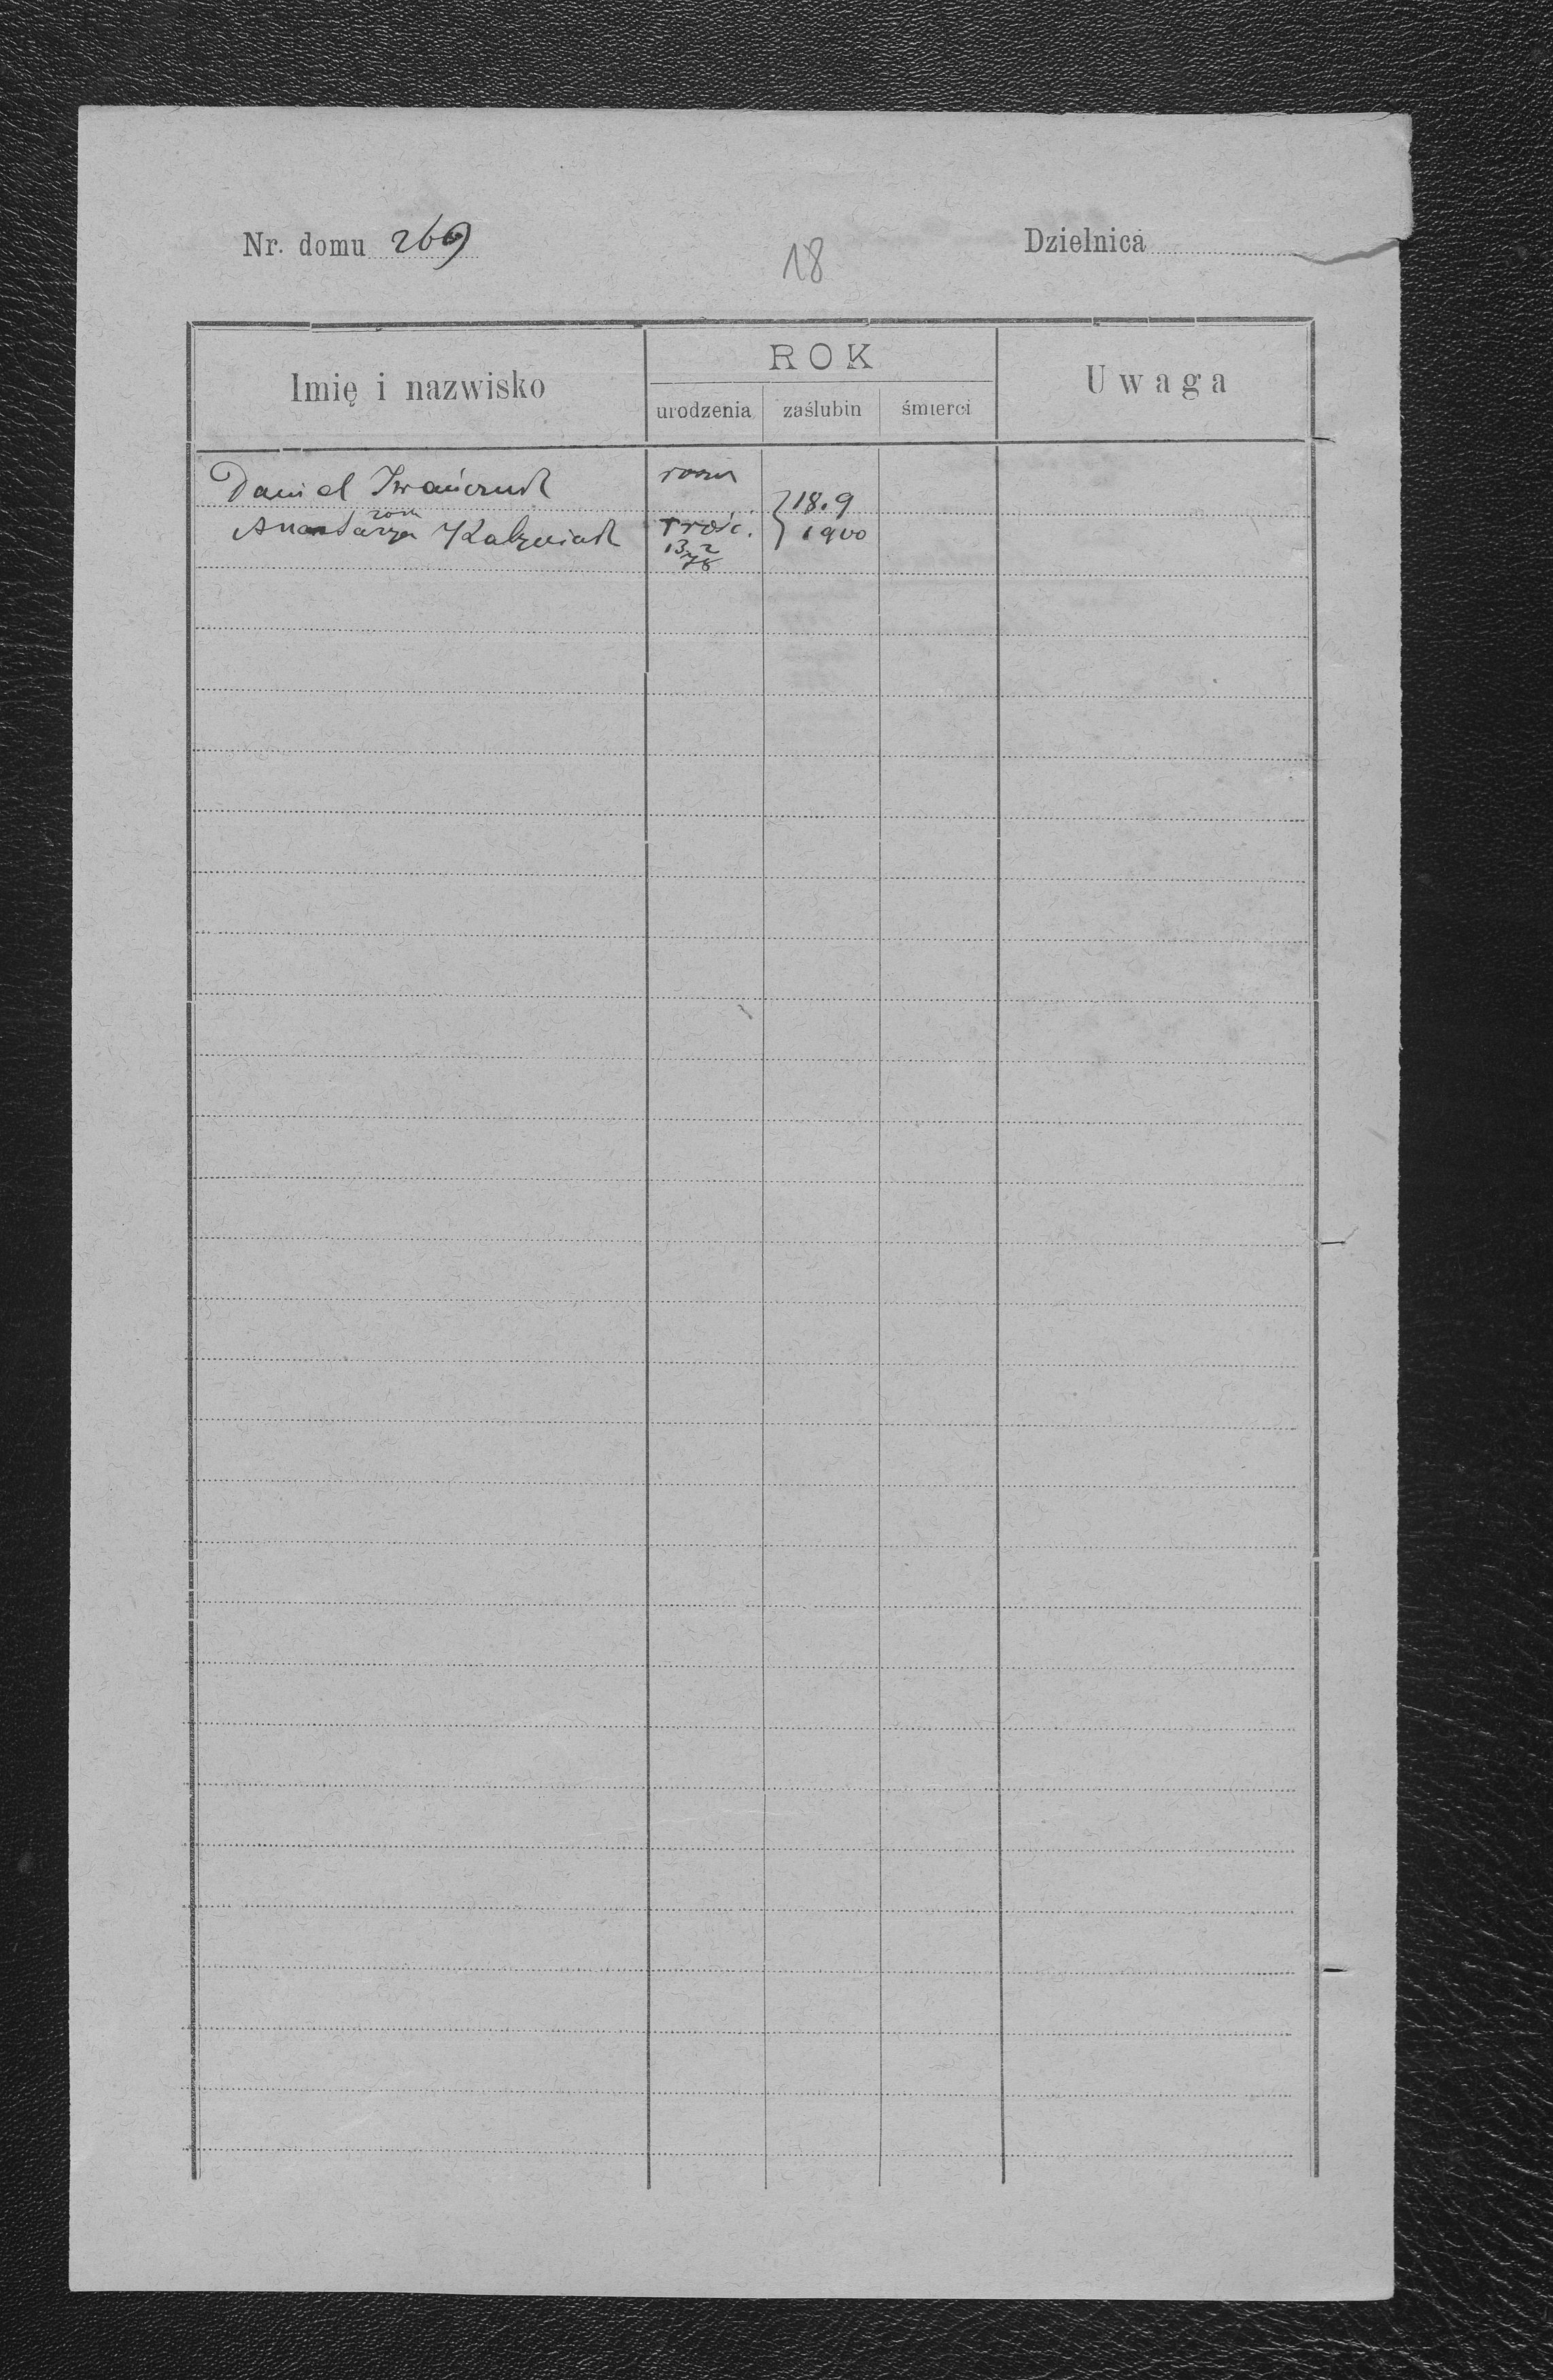 Nr. domu 269
18
Dzielnica
Imię i nazwisko
ROK
urodzenia
zaślubin
śmierci
Uwaga
Daniel Iwańczuk
18.9
1900
żon
Anastazya Kałyniuk
Trośc.
13/2
78